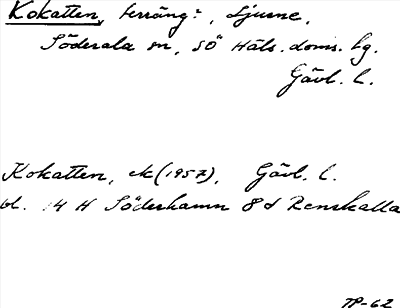 Kokatten, terräng:, Ljusne,
Söderala sn, SÖ Häls. doms. hg.
Gävl. l.
Kokatten, ek (1957), Gävl. l.
bl. 14 H Söderhamn 8 d Renskalla
TP-62